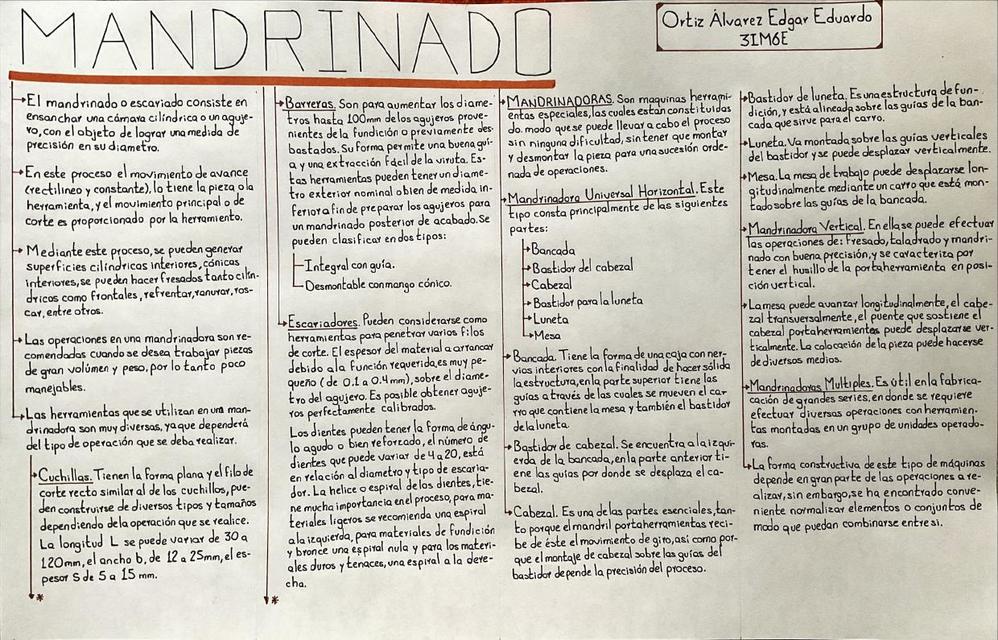 MANDRINADO
Ortiz Álvarez Edgar Eduardo
3IM6E
El mandrinado o escariado consiste en
ensanchar una cámara cilíndrica o un aguje-
ro, con el objeto de lograr una medida de
precisión en su diametro.
En este proceso el movimiento de avance
(rectilineo y constante), lo tiene la pieza o la
herramienta, y el movimiento principal o de
corte es proporcionado por la herramienta.
Mediante este proceso, se pueden generar
superficies cilíndricas interiores, cónicas
interiores, se pueden hacer fresados tanto cilín-
dricos como frontales, refrentar, ranurar, ros-
car, entre otros.
Las operaciones en una mandrinadora son re-
comendadas cuando se desea trabajar piezas
de gran volúmen y peso, por lo tanto poco
manejables.
Las herramientas que se utilizan en una man-
drinadora son muy diversas, ya que dependerá
del tipo de operación que se deba realizar.
Cuchillas. Tienen la forma plana y el filo de
corte recto similar al de los cuchillos, pue-
den construirse de diversos tipos y tamaños
dependiendo de la operación que se realice.
La longitud L se puede variar de 30 a
120mm, el ancho b, de 12 a 25mm, el es-
pesor S de 5 a 15 mm.
*
Barreras. Son para aumentar los diame-
tros hasta 100mm de los agujeros prove-
nientes de la fundición o previamente des-
bastados. Su forma permite una buena guí-
a y una extracción fácil de la viruta. Es-
tas herramientas pueden tener un diame-
tro exterior nominal o bien de medida in-
ferior a fin de preparar los agujeros para
un mandrinado posterior de acabado. Se
pueden clasificar en dos tipos:
Integral con guía.
Desmontable con mango cónico.
Escariadores. Pueden considerarse como
herramientas para penetrar varios filos
de corte. El espesor del material a arrancar
debido ala función requerida, es muy pe-
queño (de 0.1 a 0.4 mm), sobre el diame-
tro del agujero. Es posible obtener aguje-
ros perfectamente calibrados.
Los dientes pueden tener la forma de ángu-
lo agudo o bien reforzado, el número de
dientes que puede variar de 4 a 20, está
en relación al diametro y tipo de escaria-
dor. La hélice o espiral de los dientes, tie-
ne mucha importancia en el proceso, para ma-
teriales ligeros se recomienda una espiral
a la izquierda, para materiales de fundición
y bronce una espiral nula y para los materi-
ales duros y tenaces, una espiral a la dere-
cha.
*
MANDRINADORAS. Son maquinas herrami-
entas especiales, las cuales estan constituidas
de modo que se puede llevar a cabo el proceso
sin ninguna dificultad, sin tener que montar
y desmontar la pieza para una sucesión orde-
nada de operaciones.
Mandrinadora Universal Horizontal. Este
tipo consta principalmente de las siguientes
partes:
Bancada
Bastidor del cabezal
Cabezal
Bastidor para la luneta
Luneta
Mesa
Bancada. Tiene la forma de una caja con ner-
vios interiores con la finalidad de hacer sólida
la estructura, en la parte superior tiene las
guías a través de las cuales se mueven el car-
ro que contiene la mesa y también el bastidor
de la luneta.
Bastidor de cabezal. Se encuentra a la izqui-
erda de la bancada, en la parte anterior ti-
ene las guías por donde se desplaza el ca-
bezal.
Cabezal. Es una de las partes esenciales, tan-
to porque el mandril portaherramientas reci-
be de éste el movimiento de giro, así como por-
que el montaje de cabezal sobre las guías del
bastidor depende la precisión del proceso.
Bastidor de luneta. Es una estructura de fun-
dición, y está alineada sobre las guías de la ban-
cada que sirve para el carro.
Luneta. Va montada sobre las guías verticales
del bastidor y se puede desplazar verticalmente.
Mesa. La mesa de trabajo puede desplazarse lon-
gitudinalmente mediante un carro que está mon-
tado sobre las guías de la bancada.
Mandrinadora Vertical. En ella se puede efectuar
las operaciones de: Fresado, taladrado y mandri-
nado con buena precisión, y se caracteriza por
tener el husillo de la portaherramienta en posi-
ción vertical.
La mesa puede avanzar longitudinalmente, el cabe-
zal transversalmente, el puente que sostiene el
cabezal portaherramientas puede desplazarse ver-
ticalmente. La colocación de la pieza puede hacerse
de diversos medios.
Mandrinadoras Multiples. Es útil en la fabrica-
cación de grandes series, en donde se requiere
efectuar diversas operaciones con herramien-
tas montadas en un grupo de unidades operado-
ras.
La forma constructiva de este tipo de máquinas
depende en gran parte de las operaciones a re-
alizar, sin embargo, se ha encontrado conve-
niente normalizar elementos o conjuntos de
modo que puedan combinarse entre si.